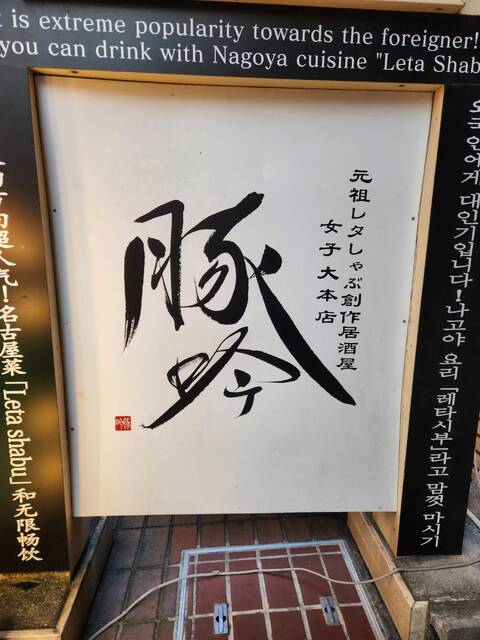 t is extreme popularity towards the foreigner!
you can drink with Nagoya cuisine "Leta Shab
元祖レタしゃぶ創作居酒屋
女子大本店
豚吟
人气！名古屋菜「Leta shabu」和无限畅饮
외국인에게 대인기입니다！나고야 요리「레타시부」라고 맘껏 마시기